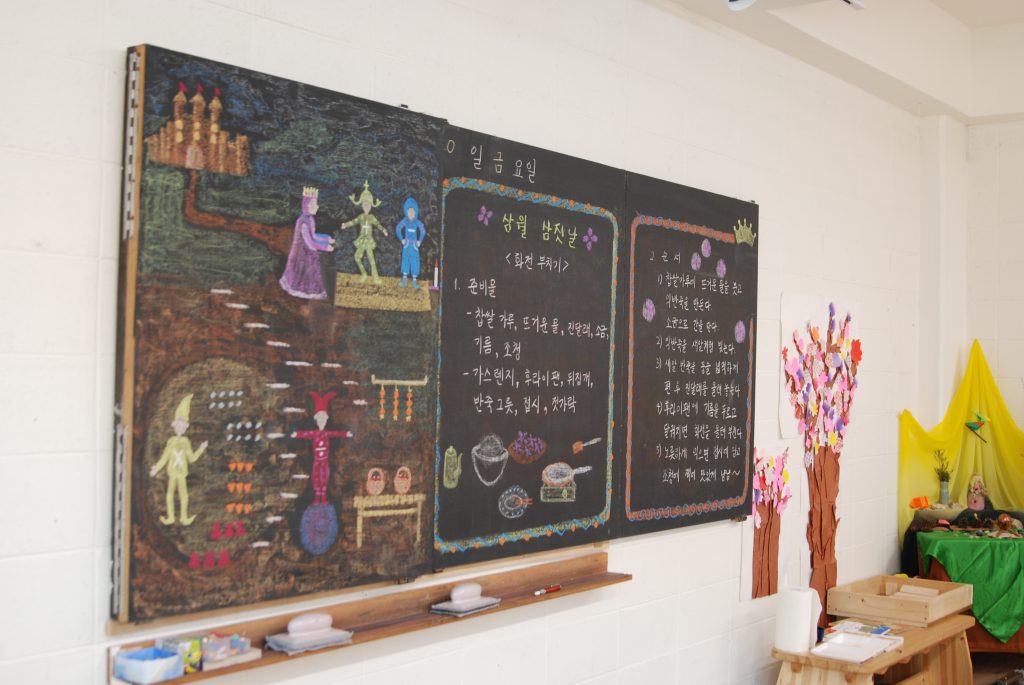 일 금 요일
삼월 삼짇날
<화전 부치기>
1. 준비물
- 찹쌀 가루, 뜨거운 물, 진달래, 소금,
기름, 조청
- 가스렌지, 후라이팬, 뒤집개,
반죽그릇, 접시, 젓가락
2. 순서
1) 찹쌀가루에 뜨거운 물을 붓고
익반죽을 만든다.
소금으로 간을 한다.
2) 익반죽을 새알처럼 빚는다.
3) 새알 반죽을 둥글 넓적하게
편 후 진달래를 올려 놓는다
4) 후라이팬에 기름을 두르고
달궈지면 화전을 올려 부친다
5) 노릇하게 익으면 접시에 담고
조청에 찍어 맛있게 냠냠~